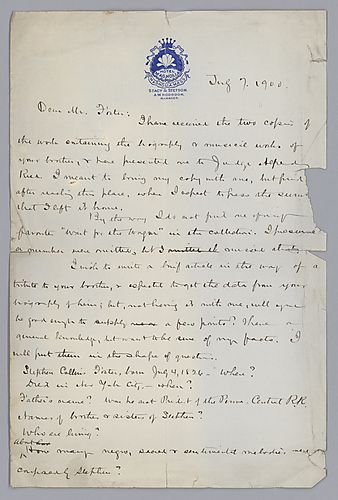 HOTEL
MAGNOLIA
MAGNOLIA, MASS.
STACY & STETSON
July 7, 1900.
Dear Mr. Foster:
I have received the two copies of
the work containing the biography & musical works of
your brother, & have presented one to Judge
Rice. I meant to bring my copy with me, but find
after reaching this place, when I expect to pass the
that I left it home.
By the way I do not find one of my
favorite "Wait for the Wagon" in the collection. I
a number were omitted, but
I wish to write a brief article in the way of a
tribute to your brother, & expected to get the data from your
biography of him; but, not having it with me, will you
be good enough to supply a few points? I have
general knowledge, but want to be sure of my facts. I
will put them in the shape of questions.
Stephen Collins Foster, born July 4, 1826 - Where?
Died in New York City, - when?
Father's name? Was he not Presdt of the Penna. Central R.R.
Names of brother & sisters of Stephen?
Who are living?
About how many negro, sacred & sentimental melodies were
composed by Stephen?